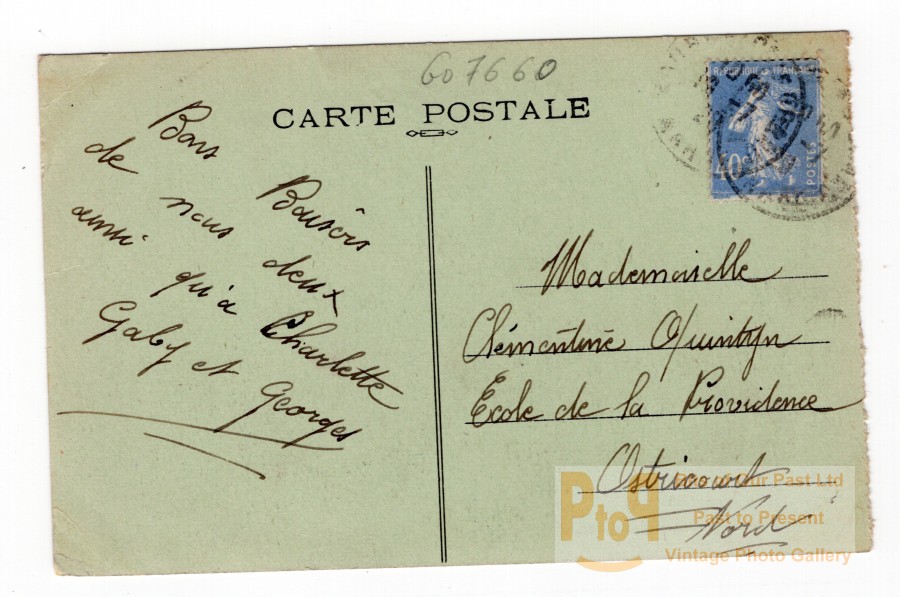 607660
CARTE POSTALE
REPUBLIQUE FRANCAISE
40c
POSTES
Bons Baisers
de nous deux
aussi qu'à Charlette
Gaby et Georges
Mademoiselle
Clémentine Quintyn
Ecole de la Providence
Ostricourt
Nord
PtoP
Past Ltd
Past to Present
Vintage Photo Gallery